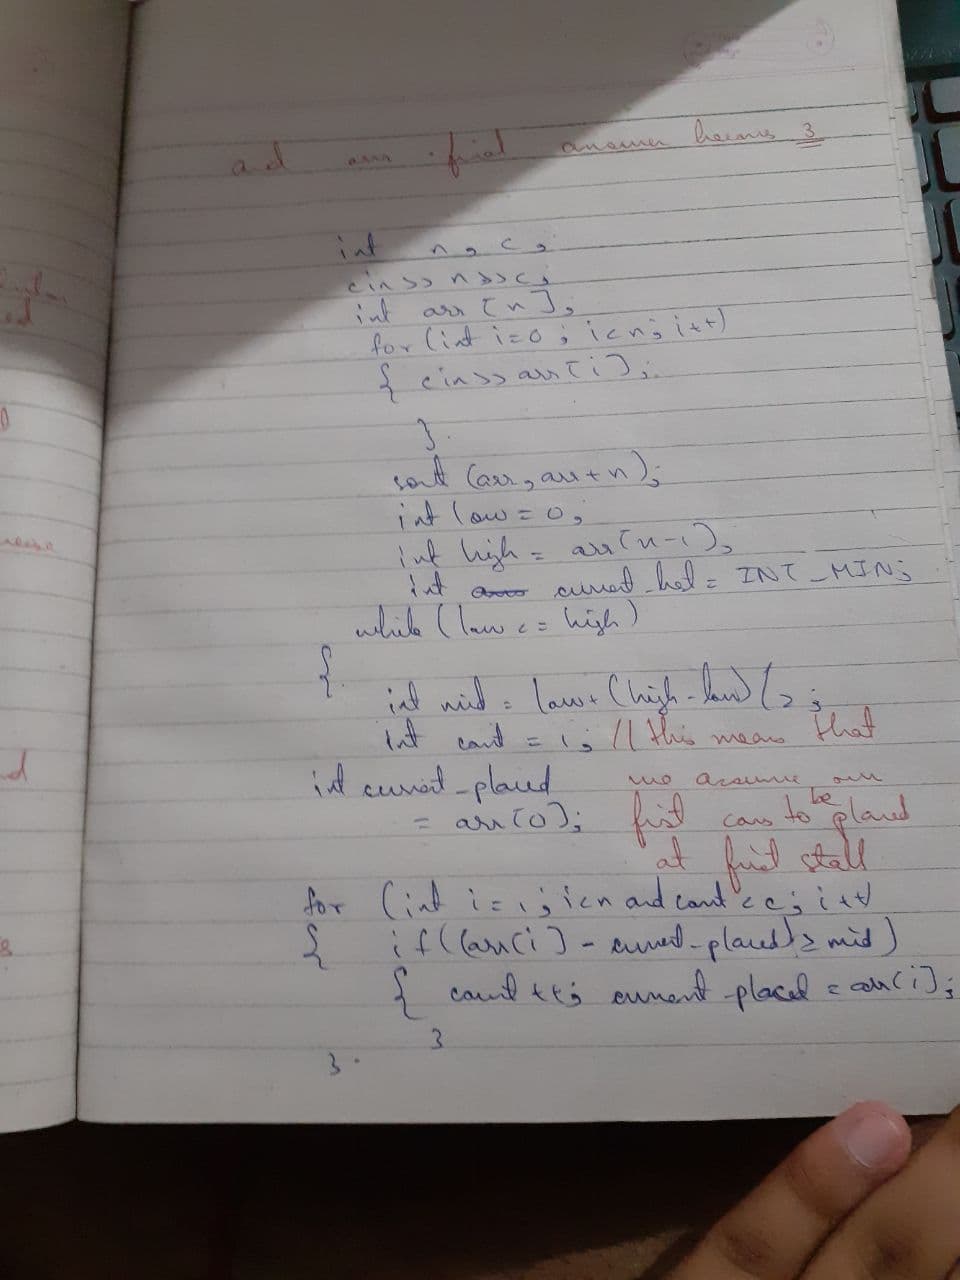 and our final answer becomes 3
int n, c;
cin>>n>>c;
int arr[n];
for (int i=0; i<n; i++)
{ cin>>arr[i];
}
sort (arr, arr+n);
int low = 0;
int high = arr[n-1];
int current_bet = INT_MIN;
while (low <= high)
{
int mid = low+ (high-low)/2;
int count = 1; // this means that
int current_placed we assume our
= arr[0]; first cow to be placed
at first stall
for (int i=1; i<n and count<c; i++)
{ if((arr[i] - current_placed)≥ mid)
{ count++; current_placed = arr[i];
}
}